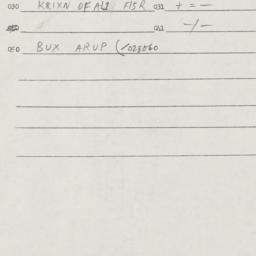 030 KRIXN OF AL1 FISR 031 + = -
041 -/-
0E0 BUX ARUP (1028060